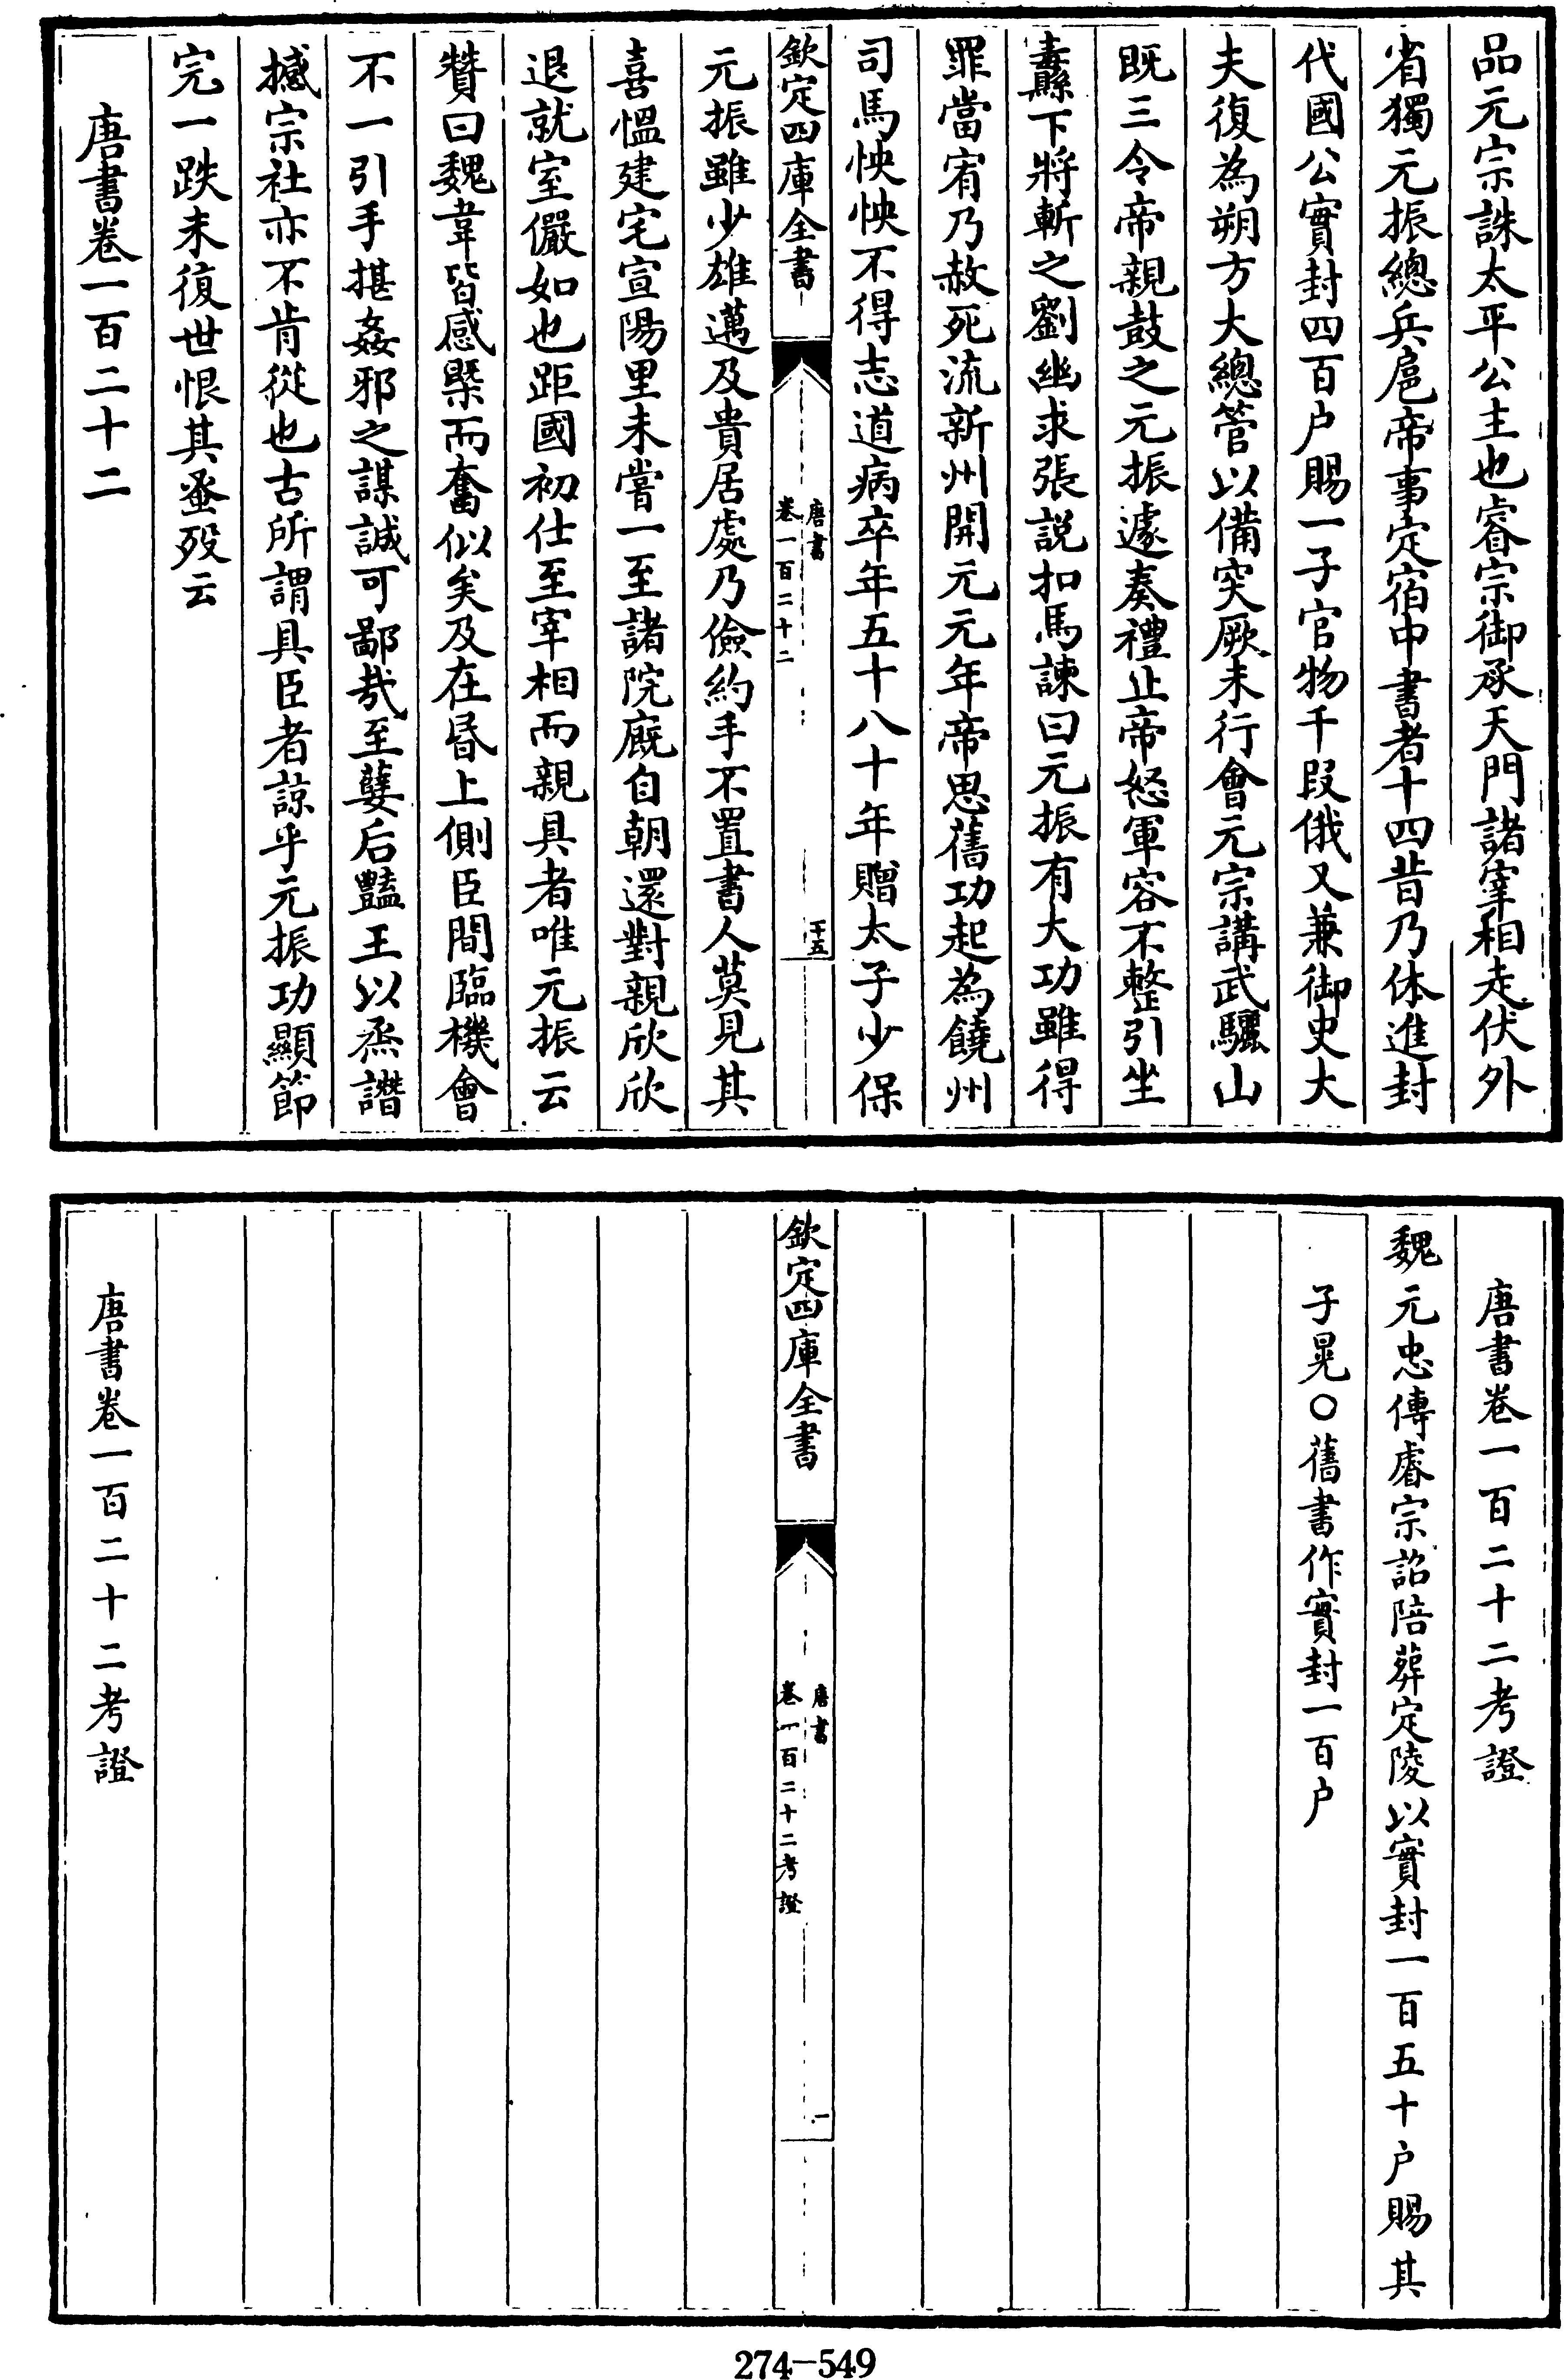 品元宗誅太平公主也睿宗御承天門諸宰相走伏外
省獨元振總兵扈帝事定宿中書者十四昔乃休進封
代國公實封四百户賜一子官物千段俄又兼御史大
夫復為朔方大總管以備突厥未行會元宗講武驪山
既三令帝親鼓之元振遽奏禮止帝怒軍容不整引坐
纛下將斬之劉幽求張説扣馬諫曰元振有大功雖得
罪當宥乃赦死流新州開元元年帝思舊功起為饒州
司馬怏怏不得志道病卒年五十八十年贈太子少保
欽定四庫全書
唐書
卷一百二十二
十五
元振雖少雄邁及貴居處乃儉約手不置書人莫見其
喜慍建宅宣陽里未嘗一至諸院廐自朝還對親欣欣
退就室儼如也距國初仕至宰相而親具者唯元振云
贊曰魏韋皆感槩而奮似矣及在昬上側臣間臨機會
不一引手揕姦邪之謀誠可鄙哉至孽后豔王以烝譖
撼宗社亦不肯從也古所謂具臣者諒乎元振功顯節
完一跌未復世恨其蚤歿云
唐書卷一百二十二
唐書卷一百二十二考證
魏元忠傳睿宗詔陪葬定陵以實封一百五十户賜其
子晃○舊書作實封一百户
欽定四庫全書
唐書
卷一百二十二考證
一
唐書卷一百二十二考證
274-549